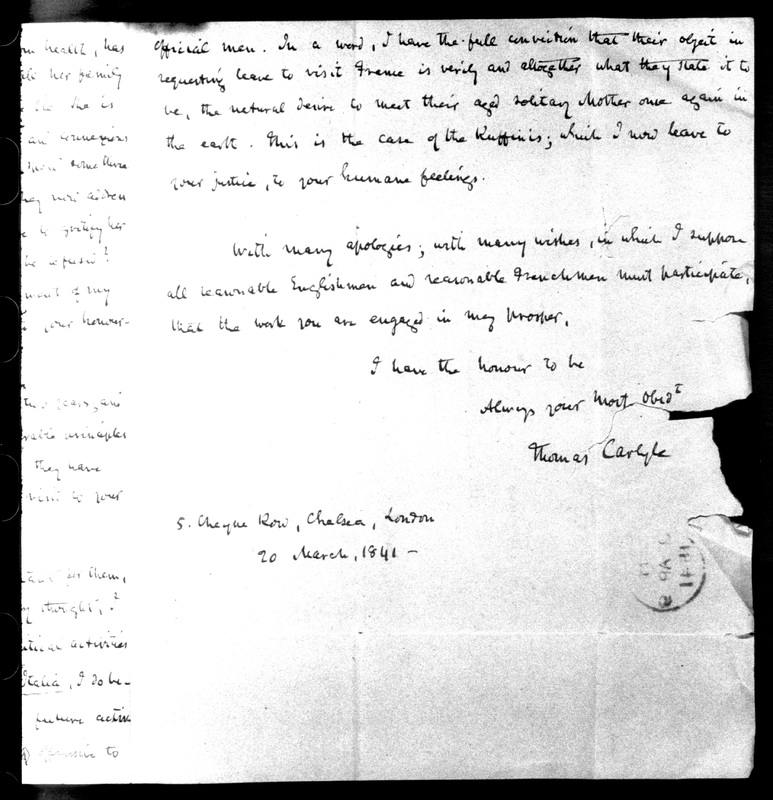 om health, has
her family
she is
and connexions
some three
they
giving her
be refused?
ment of my
your honour-
years, and
principles
they have
visit to your
them,
thought,?
activities
Italia, I do be-
future active
to
official men. In a word, I have the full conviction that their object in
requesting leave to visit France is verily and altogether what they state it to
be, the natural desire to meet their aged solitary Mother once again in
the earth. This is the case of the Ruffinis; which I now leave to
your justice, to your humane feelings.
With many apologies; with many wishes, in which I suppose
all reasonable Englishmen and reasonable Frenchmen must participate,
that the work you are engaged in may prosper,
I have the honour to be
Always your most obedt
Thomas Carlyle
5. Cheyne Row, Chelsea, London
20 March, 1841 –
1841